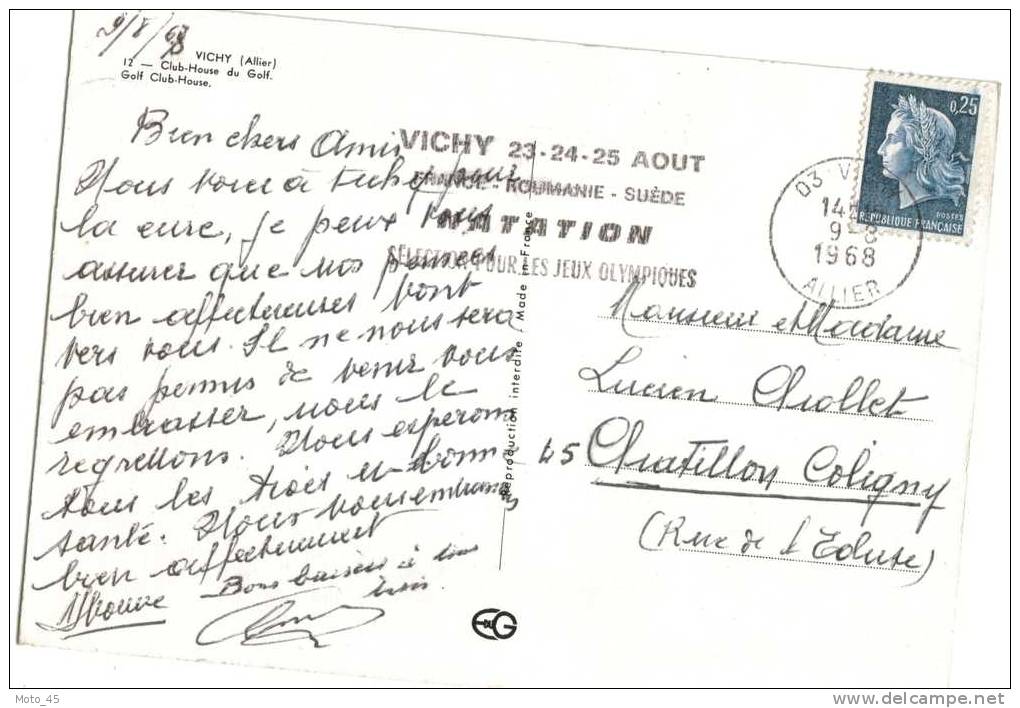 9/8/68
VICHY (Allier)
12 — Club-House du Golf.
Golf Club-House.
Bien chers Amis
Nous voici à Vichy pour
la cure, je peux vous
assurer que nos pensées
bien affectueuses vont
vers vous. Il ne nous sera
pas permis de venir vous
embrasser, nous le
regrettons. Nous esperons
tous les trois en bonne
santé. Nous vous embrassons
bien affectueusement
Bons baisers à tous
trois.
Yvonne
VICHY 23-24-25 AOUT
FRANCE - ROUMANIE - SUÈDE
NATATION
SÉLECTION POUR LES JEUX OLYMPIQUES
03 VICHY
14
9-8
1968
ALLIER
0,25
POSTES
REPUBLIQUE FRANÇAISE
Reproduction interdite / Made in France
Monsieur et Madame
Lucien Chollet
45 Chatillon Coligny
(Rue de l'Ecluse)
E DU G
Moto_45
http://www.delcampe.net